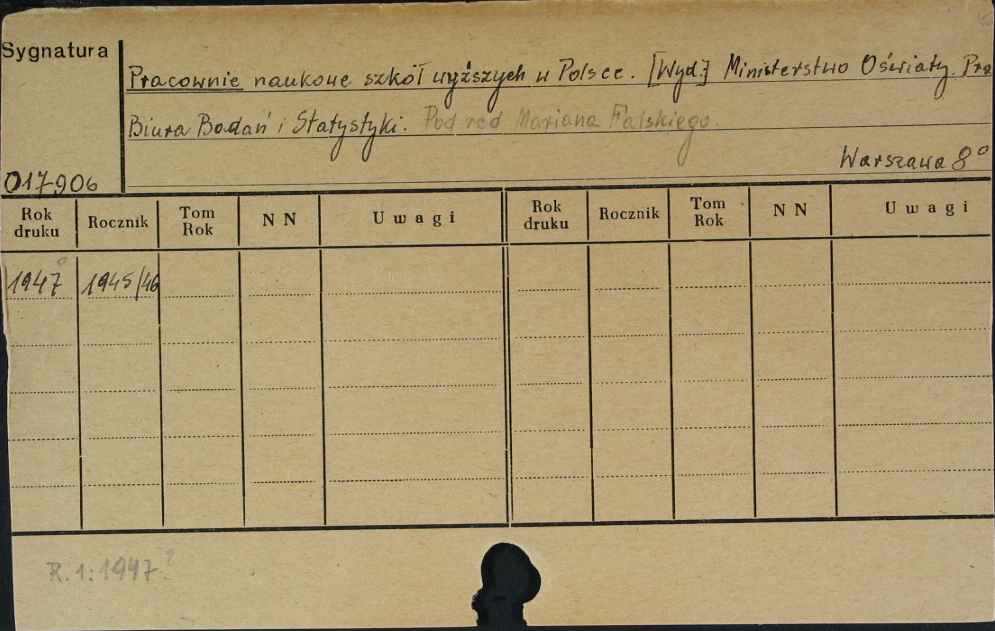 Sygnatura
Pracownie naukowe szkół wyższych w Polsce. [Wyd.] Ministerstwo Oświaty. Pra
Biura Badań i Statystyki. Pod red Mariana Falskiego.
Warszawa 8°
017906
Rok druku Rocznik Tom Rok N N Uwagi Rok druku Rocznik Tom Rok N N Uwagi
1947 1945/46
R. 1: 1947?